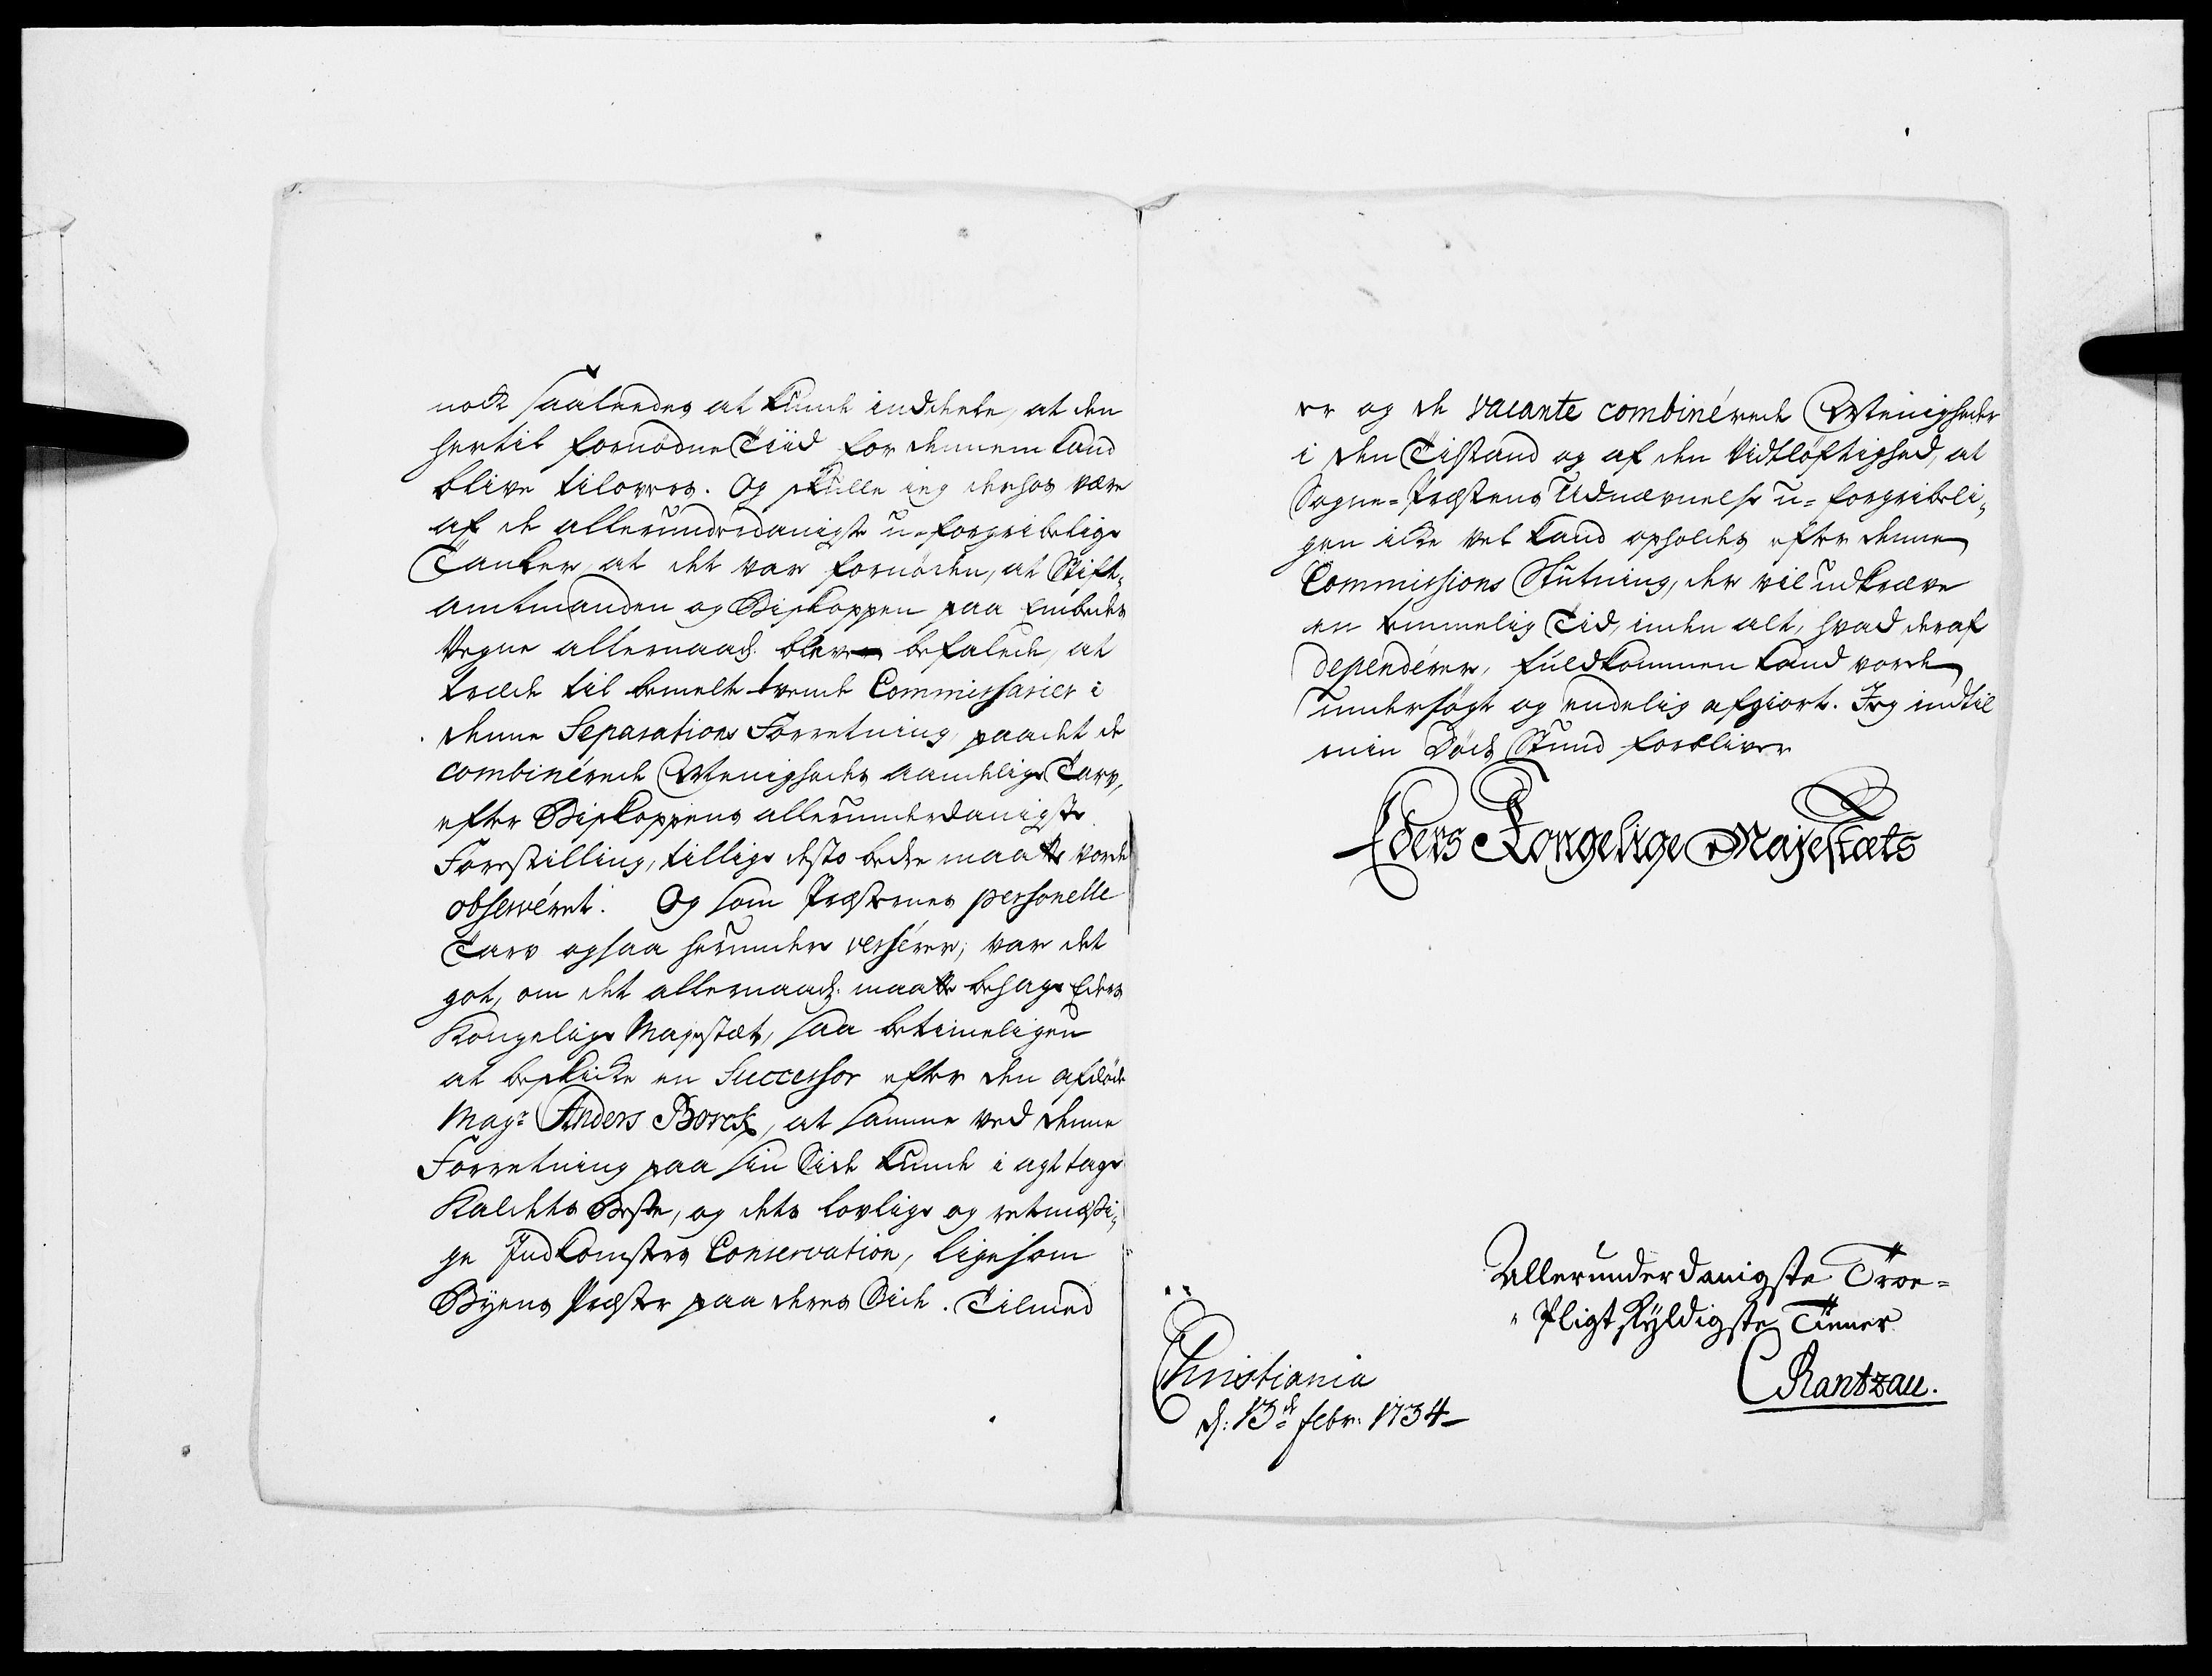 nock saaleedes at kunde inddeele, at den
hertil fornødne Tiid for dennem kand
blive tilovers. Og skulle ieg derhos være
af de allerunderdanigste u-forgribelige
Tanker, at det var fornøden, at Stift-
amtmanden og Biskoppen paa Embeds
Vegne allernaad: bleve befalede, at
træde til bemelte tvende Commissarier i
denne Separations Forretning, paa det de
combinérede Menigheds aandelige Tarv,
efter Biskoppens allerunderdanigste
Forestilling, tillige desto bedre maatte vorde
observéret. Og som Præsternes personelle
Tarv ogsaa herunder versérer; var det
got, om det allernaad: maatte behage Eders
Kongelige Majestæt, saa betimeligen
at beskicke en Successor efter den afdøde
Magr Anders Borch, at samme ved denne
Forretning paa sin Side kunde i agt tage
Kaldets Beste, og dets lovlige og retmæssi-
ge Indkomsters Conservation, ligesom
Byens Præster paa deres Side. Tilmed
er og de vacante combinérede Menigheder
i den Tilstand og af den Vidtløftighed, at
Sogne-Præstens Udnævnelse u-forgribeli-
gen icke vel kand opholdes efter denne
Commissions Slutning, der vil udkræve
en temmelig Tid, inden alt, hvad deraf
dependérer, fuldkommen kand vorde
undersøgt og endelig afgiort. Jeg indtil
min Døds Stund forbliver
Eders Kongelige Majestæts
Allerunderdanigste Troe-
Pligtskyldigste Tiener
CRantzau.
Christiania
d: 13de Febr: 1734